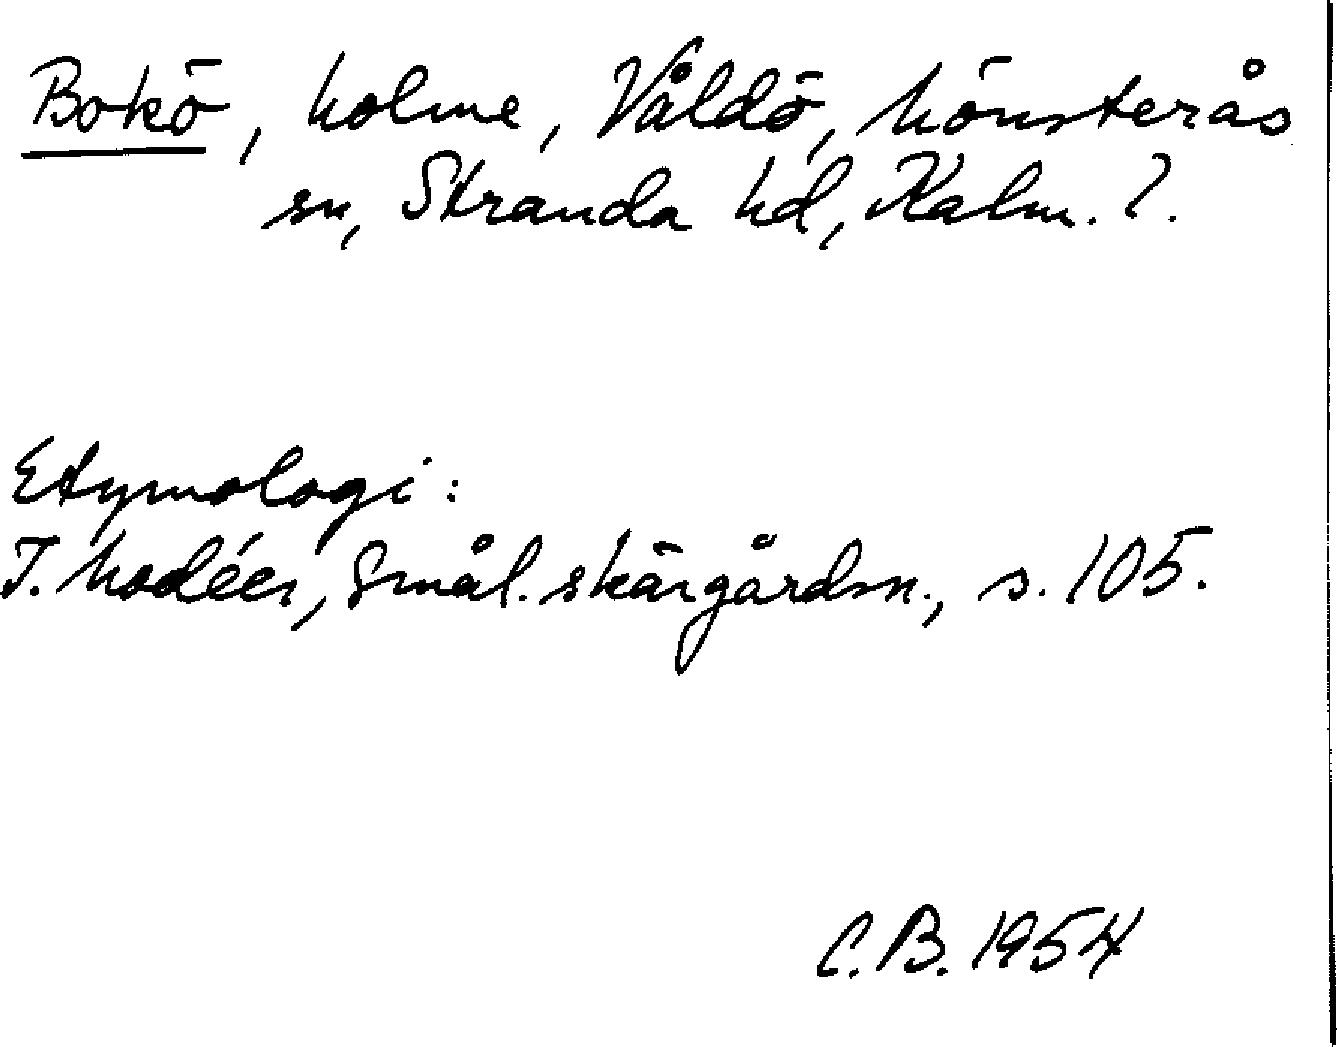 Bokö, holme, Våldö, Mönsterås
sn, Stranda hd, Kalm. l.
Etymologi:
T. Modéer, Smål. skärgårdsn., s. 105.
C.B. 1954